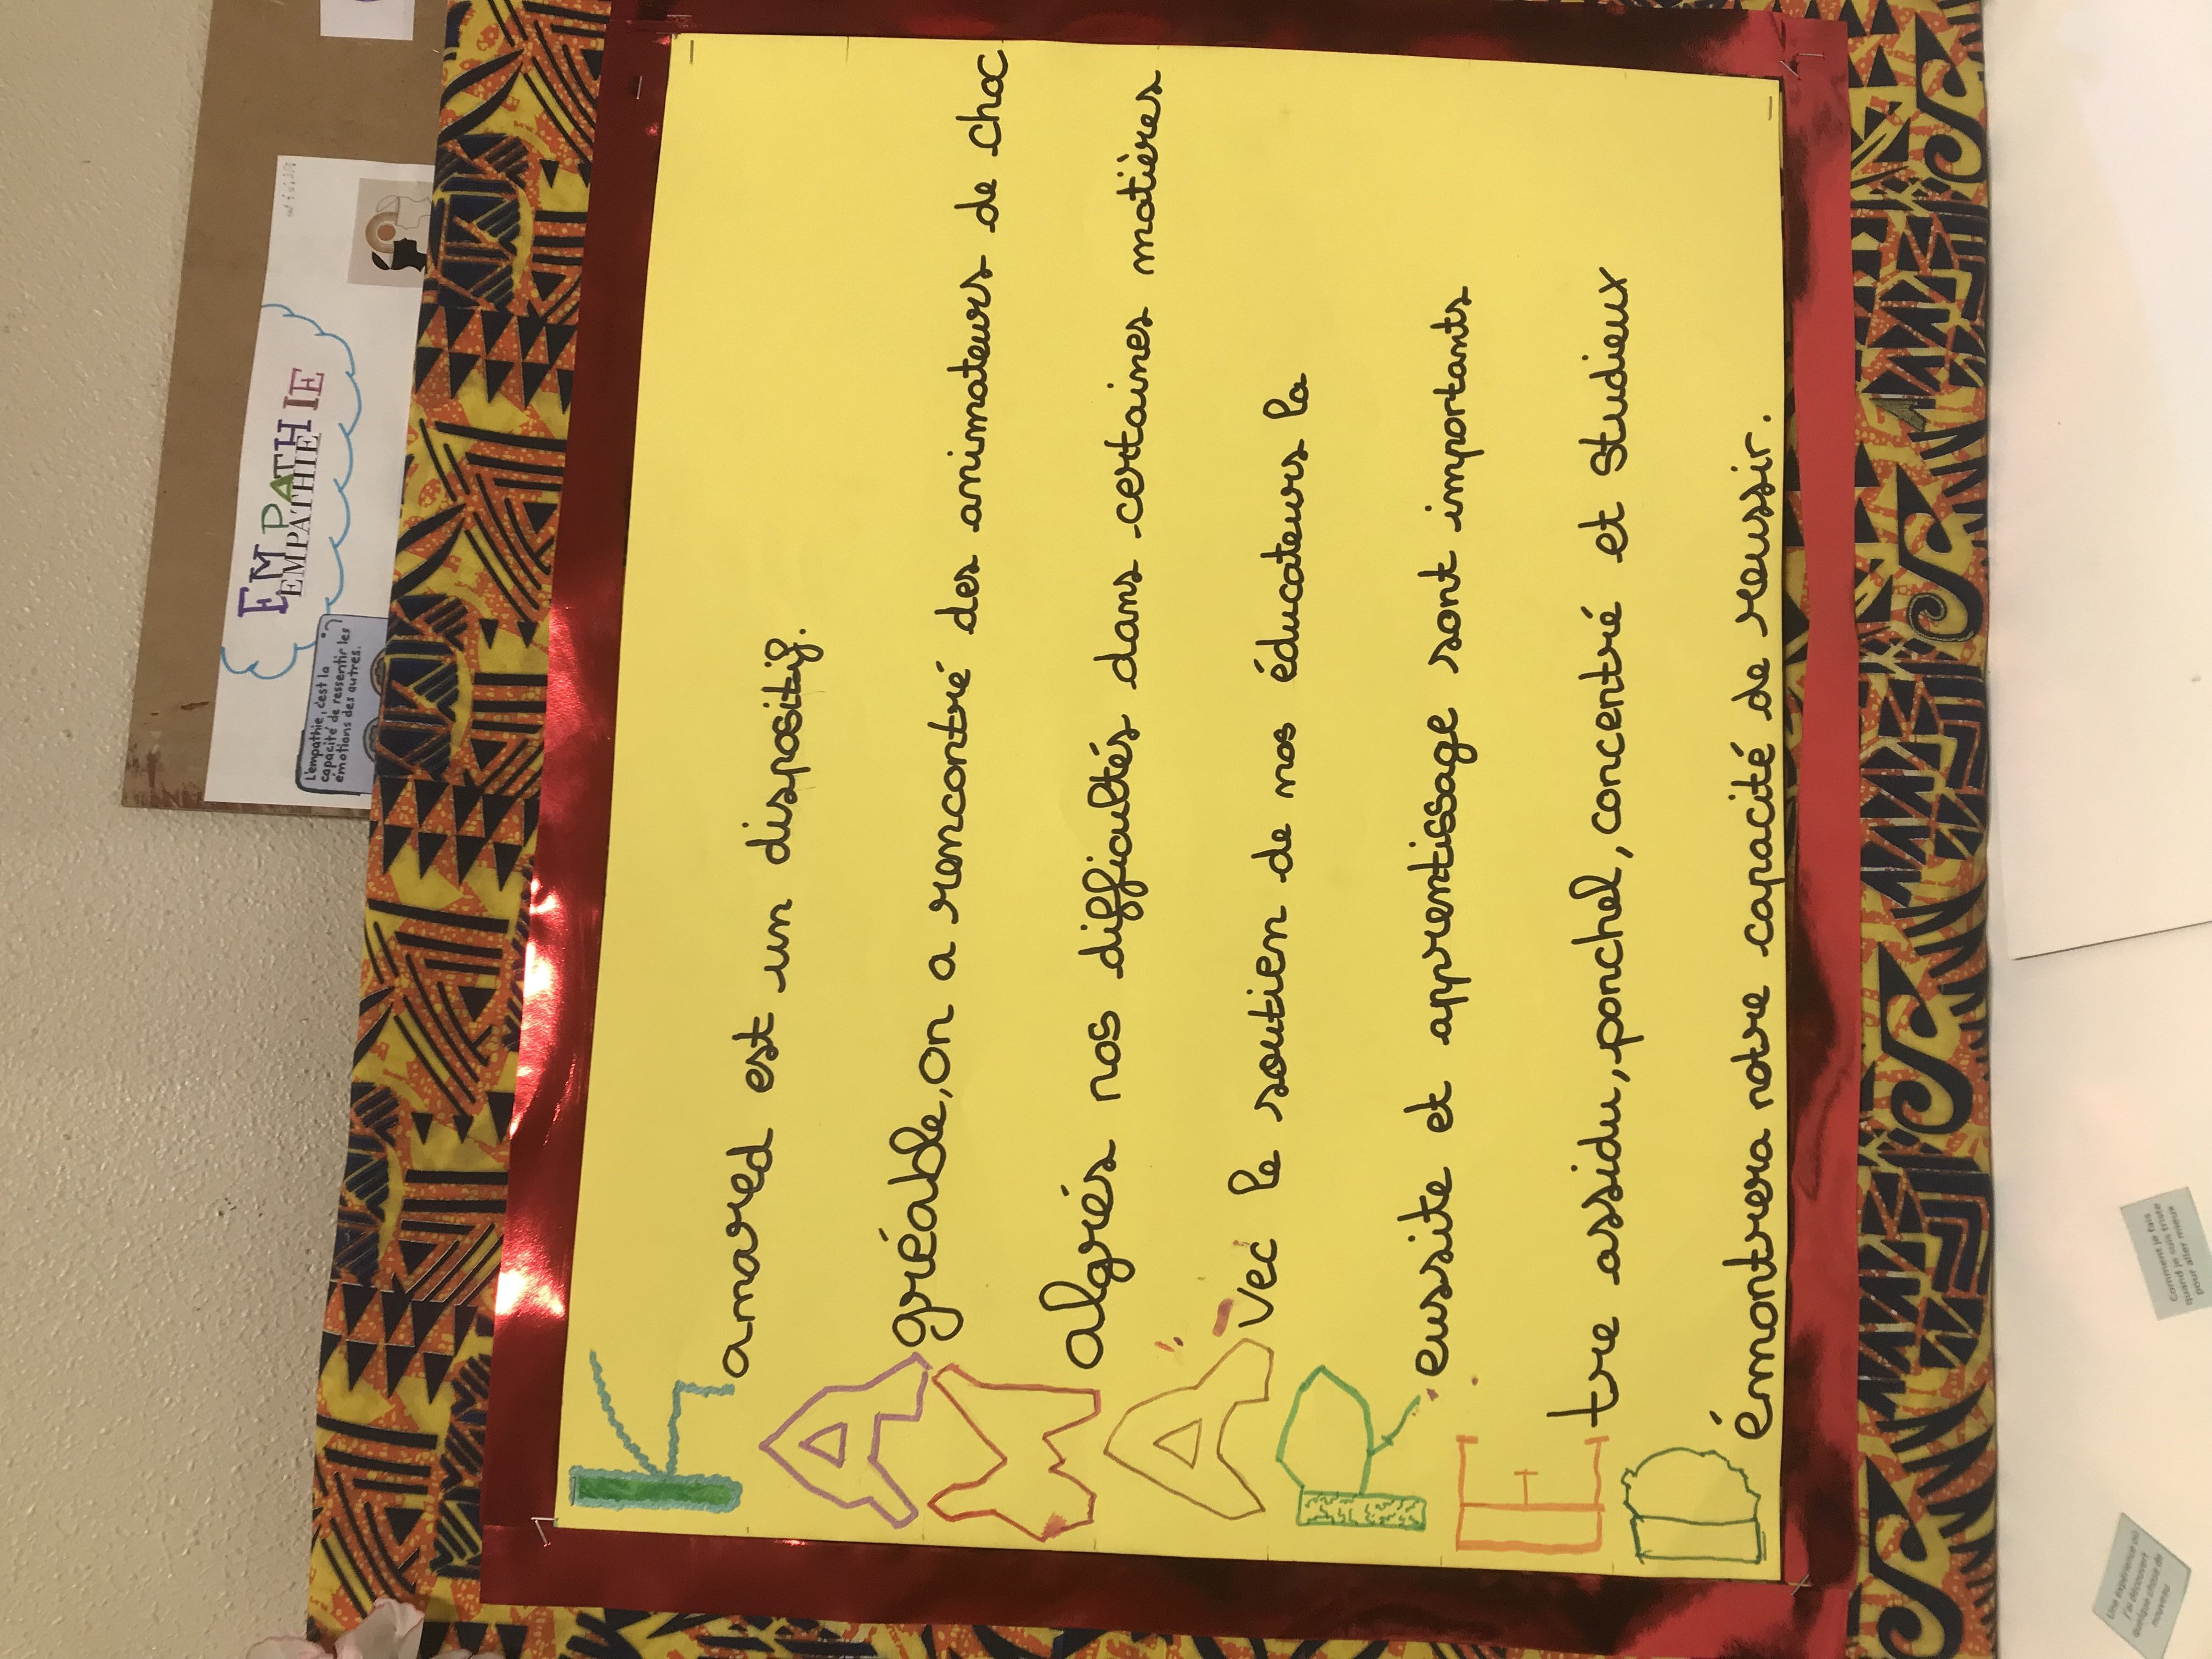 EMPATHIE
EMPATHIE
L'empathie, c'est la
capacité de ressentir les
émotions des autres.
Kamared est un dispositif.
Agréable, on a rencontré des animateurs de choc
Malgrés nos difficultés dans certaines matières
Avec le soutien de nos éducateurs la
Reussite et apprentissage sont importants
Etre assidu, ponchel, concentré et studieux
Démontrera notre capacité de reussir.
Comment je fais
quand je suis triste
pour aller mieux
Une expérience où
j'ai découvert
quelque chose de
nouveau